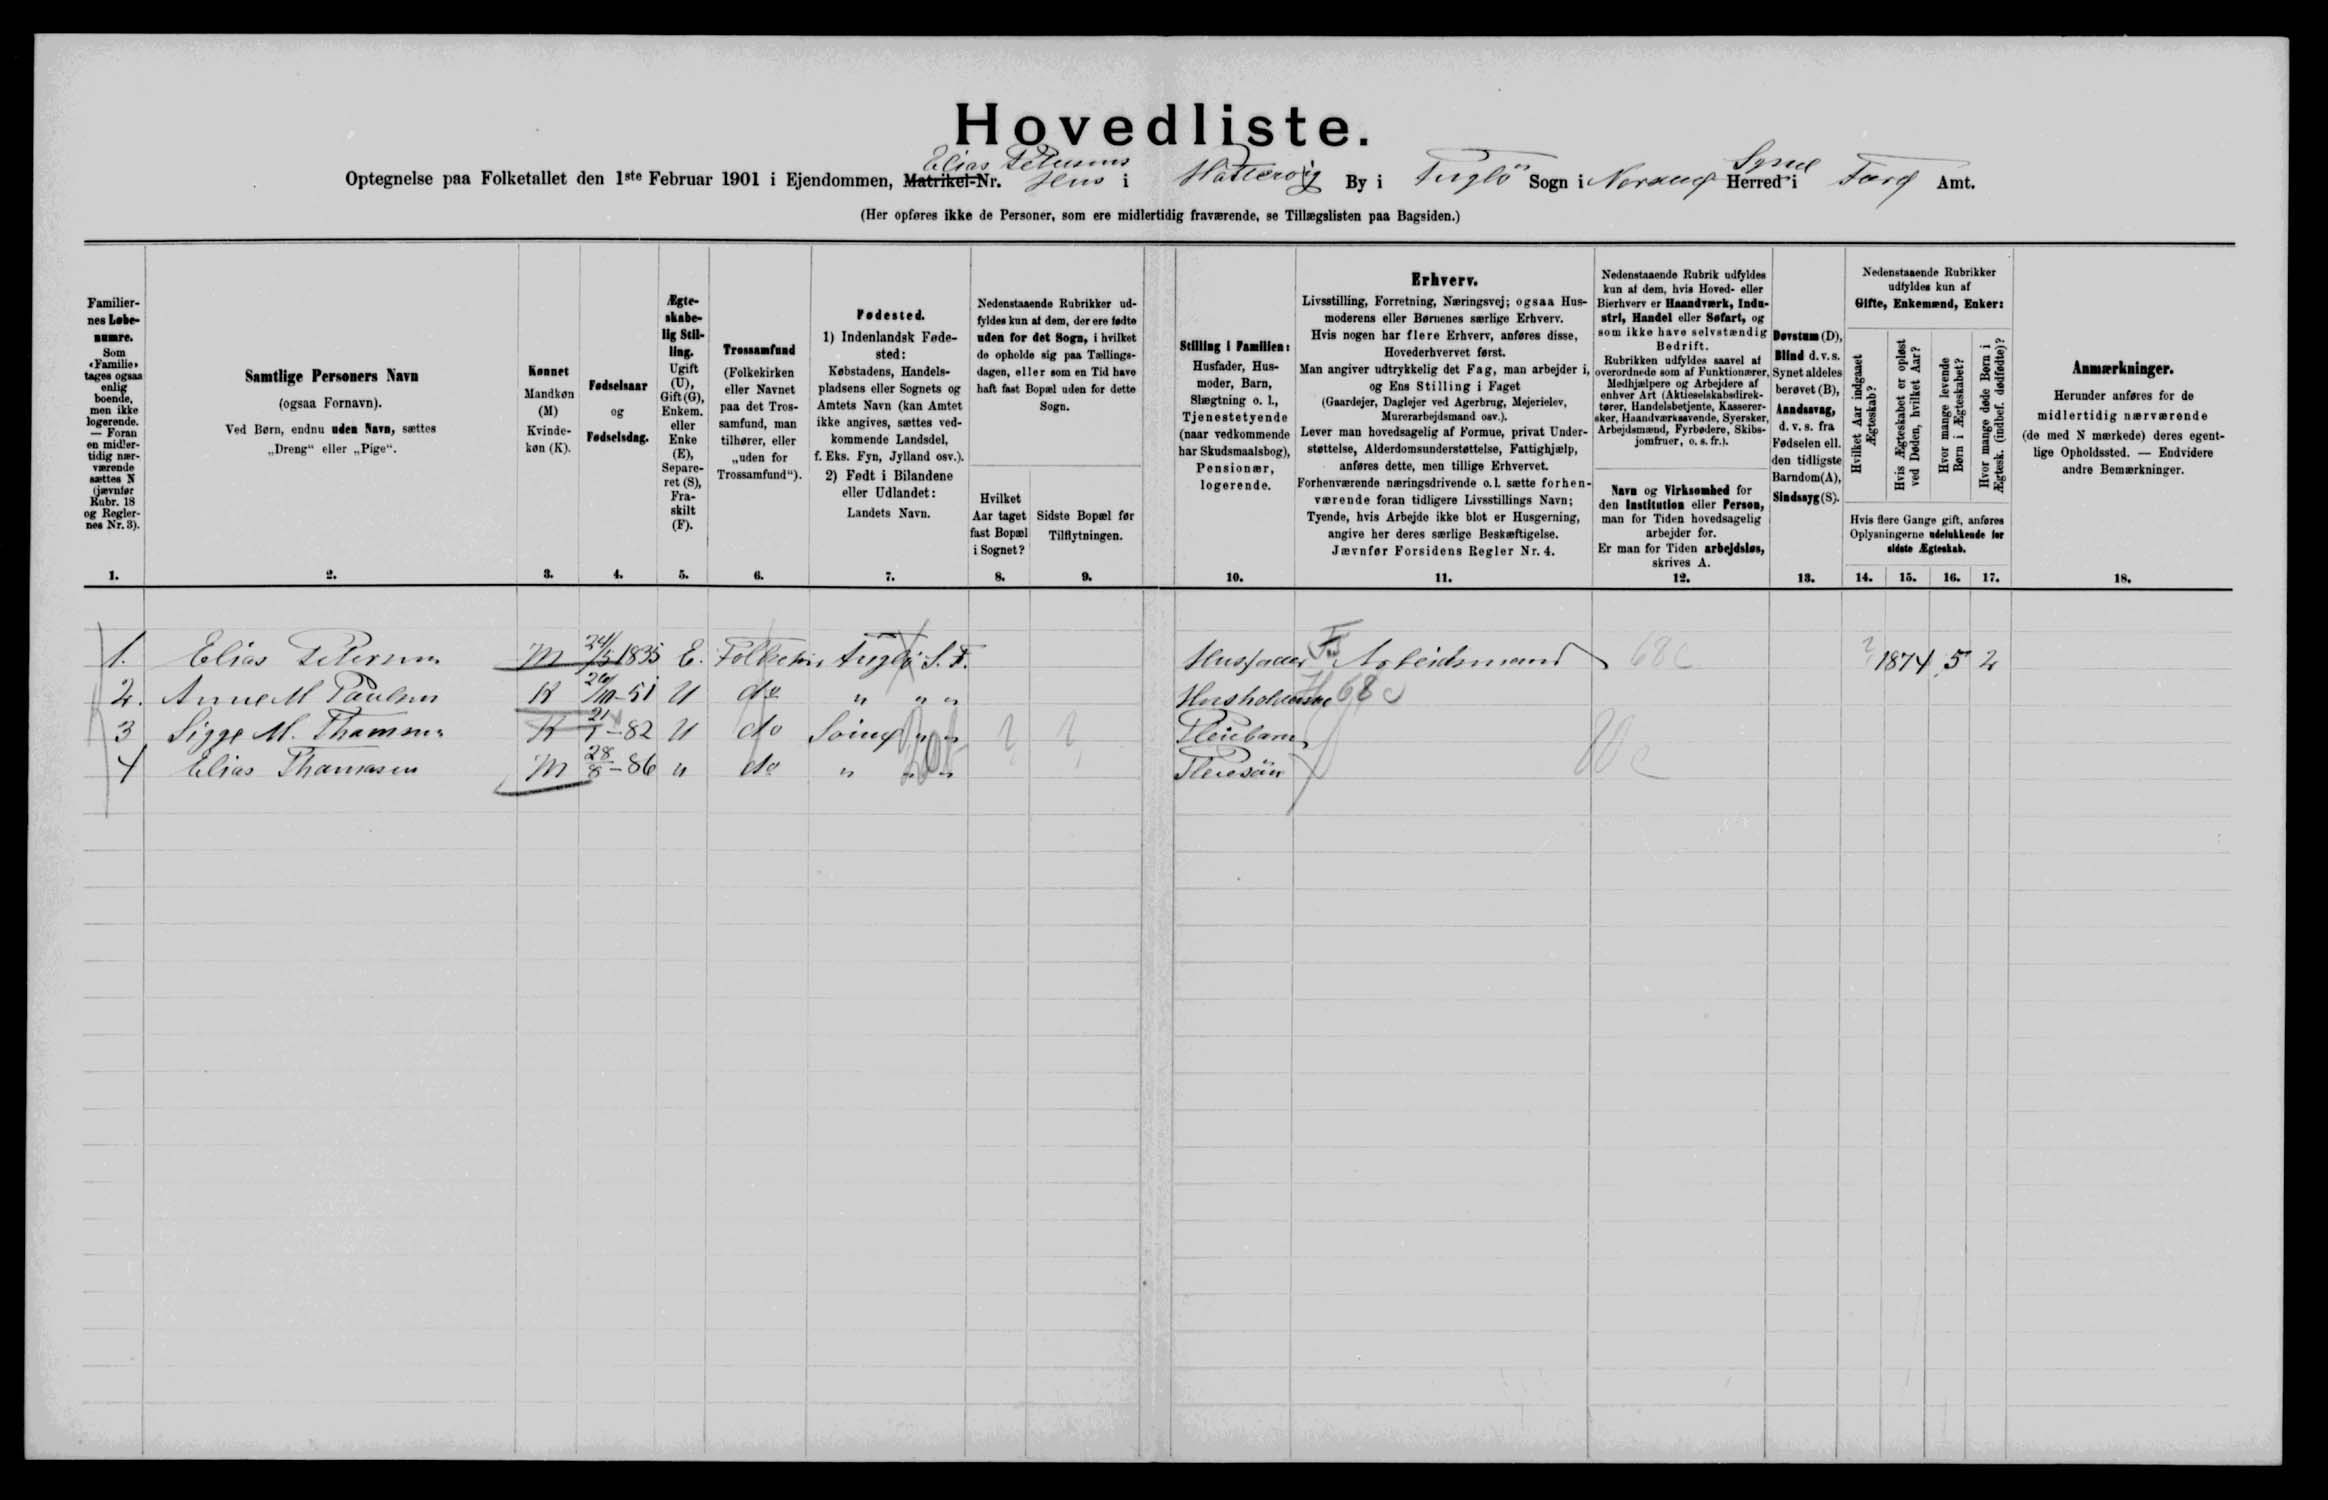 Hovedliste.
Elias Petersens Syssel
Optegnelse paa Folketallet den 1ste Februar 1901 i Ejendommen, Matrikel-Nr. Hus i Hattervig By i Fuglö Sogn i Herred i Amt.
(Her opføres ikke de Personer, som ere midlertidig fraværende, se Tillægslisten paa Bagsiden.)
Familiernes Løbenumre. Som «Familie» tages ogsaa enlig boende, men ikke logerende. — Foran en midlertidig nærværende sættes N (jævnfør Rubr. 18 og Reglernes Nr. 3).
Samtlige Personers Navn
(ogsaa Fornavn).
Ved Børn, endnu uden Navn, sættes
„Dreng“ eller „Pige“.
Kønnet
Mandkøn
(M)
Kvinde-
køn (K).
Fødselsaar
og
Fødselsdag.
Ægteskabelig Stilling. Ugift (U), Gift (G), Enkem. eller Enke (E), Separeret (S), Fraskilt (F).
Trossamfund
(Folkekirken
eller Navnet
paa det Tros-
samfund, man
tilhører, eller
„uden for
Trossamfund“).
Fødested.
1) Indenlandsk Føde-
sted:
Købstadens, Handels-
pladsens eller Sognets og
Amtets Navn (kan Amtet
ikke angives, sættes ved-
kommende Landsdel,
f. Eks. Fyn, Jylland osv.).
2) Født i Bilandene
eller Udlandet:
Landets Navn.
Nedenstaaende Rubrikker ud-
fyldes kun af dem, der ere fødte
uden for det Sogn, i hvilket
de opholde sig paa Tællings-
dagen, eller som en Tid have
haft fast Bopæl uden for dette
Sogn.
Hvilket
Aar taget
fast Bopæl
i Sognet?
Sidste Bopæl før
Tilflytningen.
Stilling i Familien:
Husfader, Hus-
moder, Barn,
Slægtning o. l.,
Tjenestetyende
(naar vedkommende
har Skudsmaalsbog),
Pensionær,
logerende.
Erhverv.
Livsstilling, Forretning, Næringsvej; ogsaa Hus-
moderens eller Børnenes særlige Erhverv.
Hvis nogen har flere Erhverv, anføres disse,
Hovederhvervet først.
Man angiver udtrykkelig det Fag, man arbejder i,
og Ens Stilling i Faget
(Gaardejer, Daglejer ved Agerbrug, Mejerielev,
Murerarbejdsmand osv.).
Lever man hovedsagelig af Formue, privat Under-
støttelse, Alderdomsunderstøttelse, Fattighjælp,
anføres dette, men tillige Erhvervet.
Forhenværende næringsdrivende o. l. sætte forhen-
værende foran tidligere Livsstillings Navn;
Tyende, hvis Arbejde ikke blot er Husgerning,
angive her deres særlige Beskæftigelse.
Jævnfør Forsidens Regler Nr. 4.
Nedenstaaende Rubrik udfyldes
kun af dem, hvis Hoved- eller
Bierhverv er Haandværk, Indu-
stri, Handel eller Søfart, og
som ikke have selvstændig
Bedrift.
Rubrikken udfyldes saavel af
overordnede som af Funktionærer,
Medhjælpere og Arbejdere af
enhver Art (Aktieselskabsdirek-
tører, Handelsbetjente, Kasserer-
sker, Haandværkssvende, Syersker,
Arbejdsmænd, Fyrbødere, Skibs-
jomfruer, o. s. fr.).
Navn og Virksomhed for
den Institution eller Person,
man for Tiden hovedsagelig
arbejder for.
Er man for Tiden arbejdsløs,
skrives A.
Døvstum (D),
Blind d. v. s.
Synet aldeles
berøvet (B),
Aandssvag,
d. v. s. fra
Fødselen ell.
den tidligste
Barndom (A),
Sindssyg (S).
Nedenstaaende Rubrikker
udfyldes kun af
Gifte, Enkemænd, Enker:
Hvilket Aar indgaaet
Ægteskab?
Hvis Ægteskabet er opløst
ved Døden, hvilket Aar?
Hvor mange levende
Børn i Ægteskabet?
Hvor mange døde Børn i
Ægtesk. (indbef. dødfødte)?
Hvis flere Gange gift, anføres
Oplysningerne udelukkende for
sidste Ægteskab.
Anmærkninger.
Herunder anføres for de
midlertidig nærværende
(de med N mærkede) deres egent-
lige Opholdssted. — Endvidere
andre Bemærkninger.
1. 2. 3. 4. 5. 6. 7. 8. 9. 10. 11. 12. 13. 14. 15. 16. 17. 18.
1. Elias Petersen M 24/5 1835 E. Folkekir. Fuglø S. F. Husfader Arbeidsmand 68 c ? 1874 5 2
2. Anne M Paulsen K 26/10-51 U do " " " Husholderske 68 c
3 Sigge M. Thamsen K 21/1-82 U do " " ? ? Pleiebarn
4 Elias Thamasen M 28/8-86 " do " " " ? ? Pleiesön